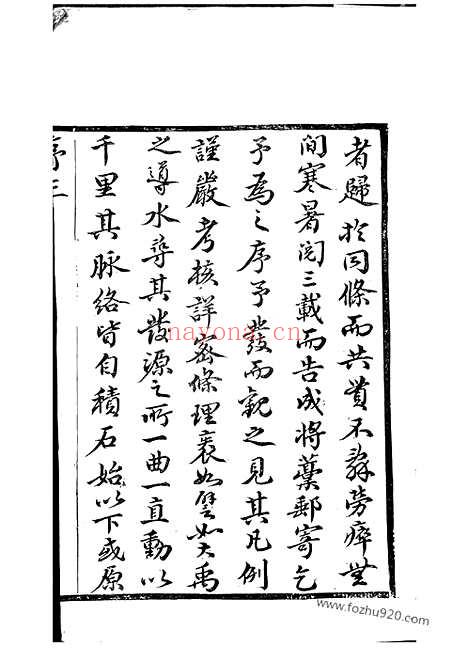 者歸於同條而共貫不辭勞瘁無
間寒暑閱三載而告成將藁郵寄乞
予為之序予發而觀之見其凡例
謹嚴考核詳密條理襄如譬如大禹
之導水尋其發源之所一曲一直動以
千里其脈絡皆自積石始以下或原
序三
nayona.cn
www.fozhu920.com